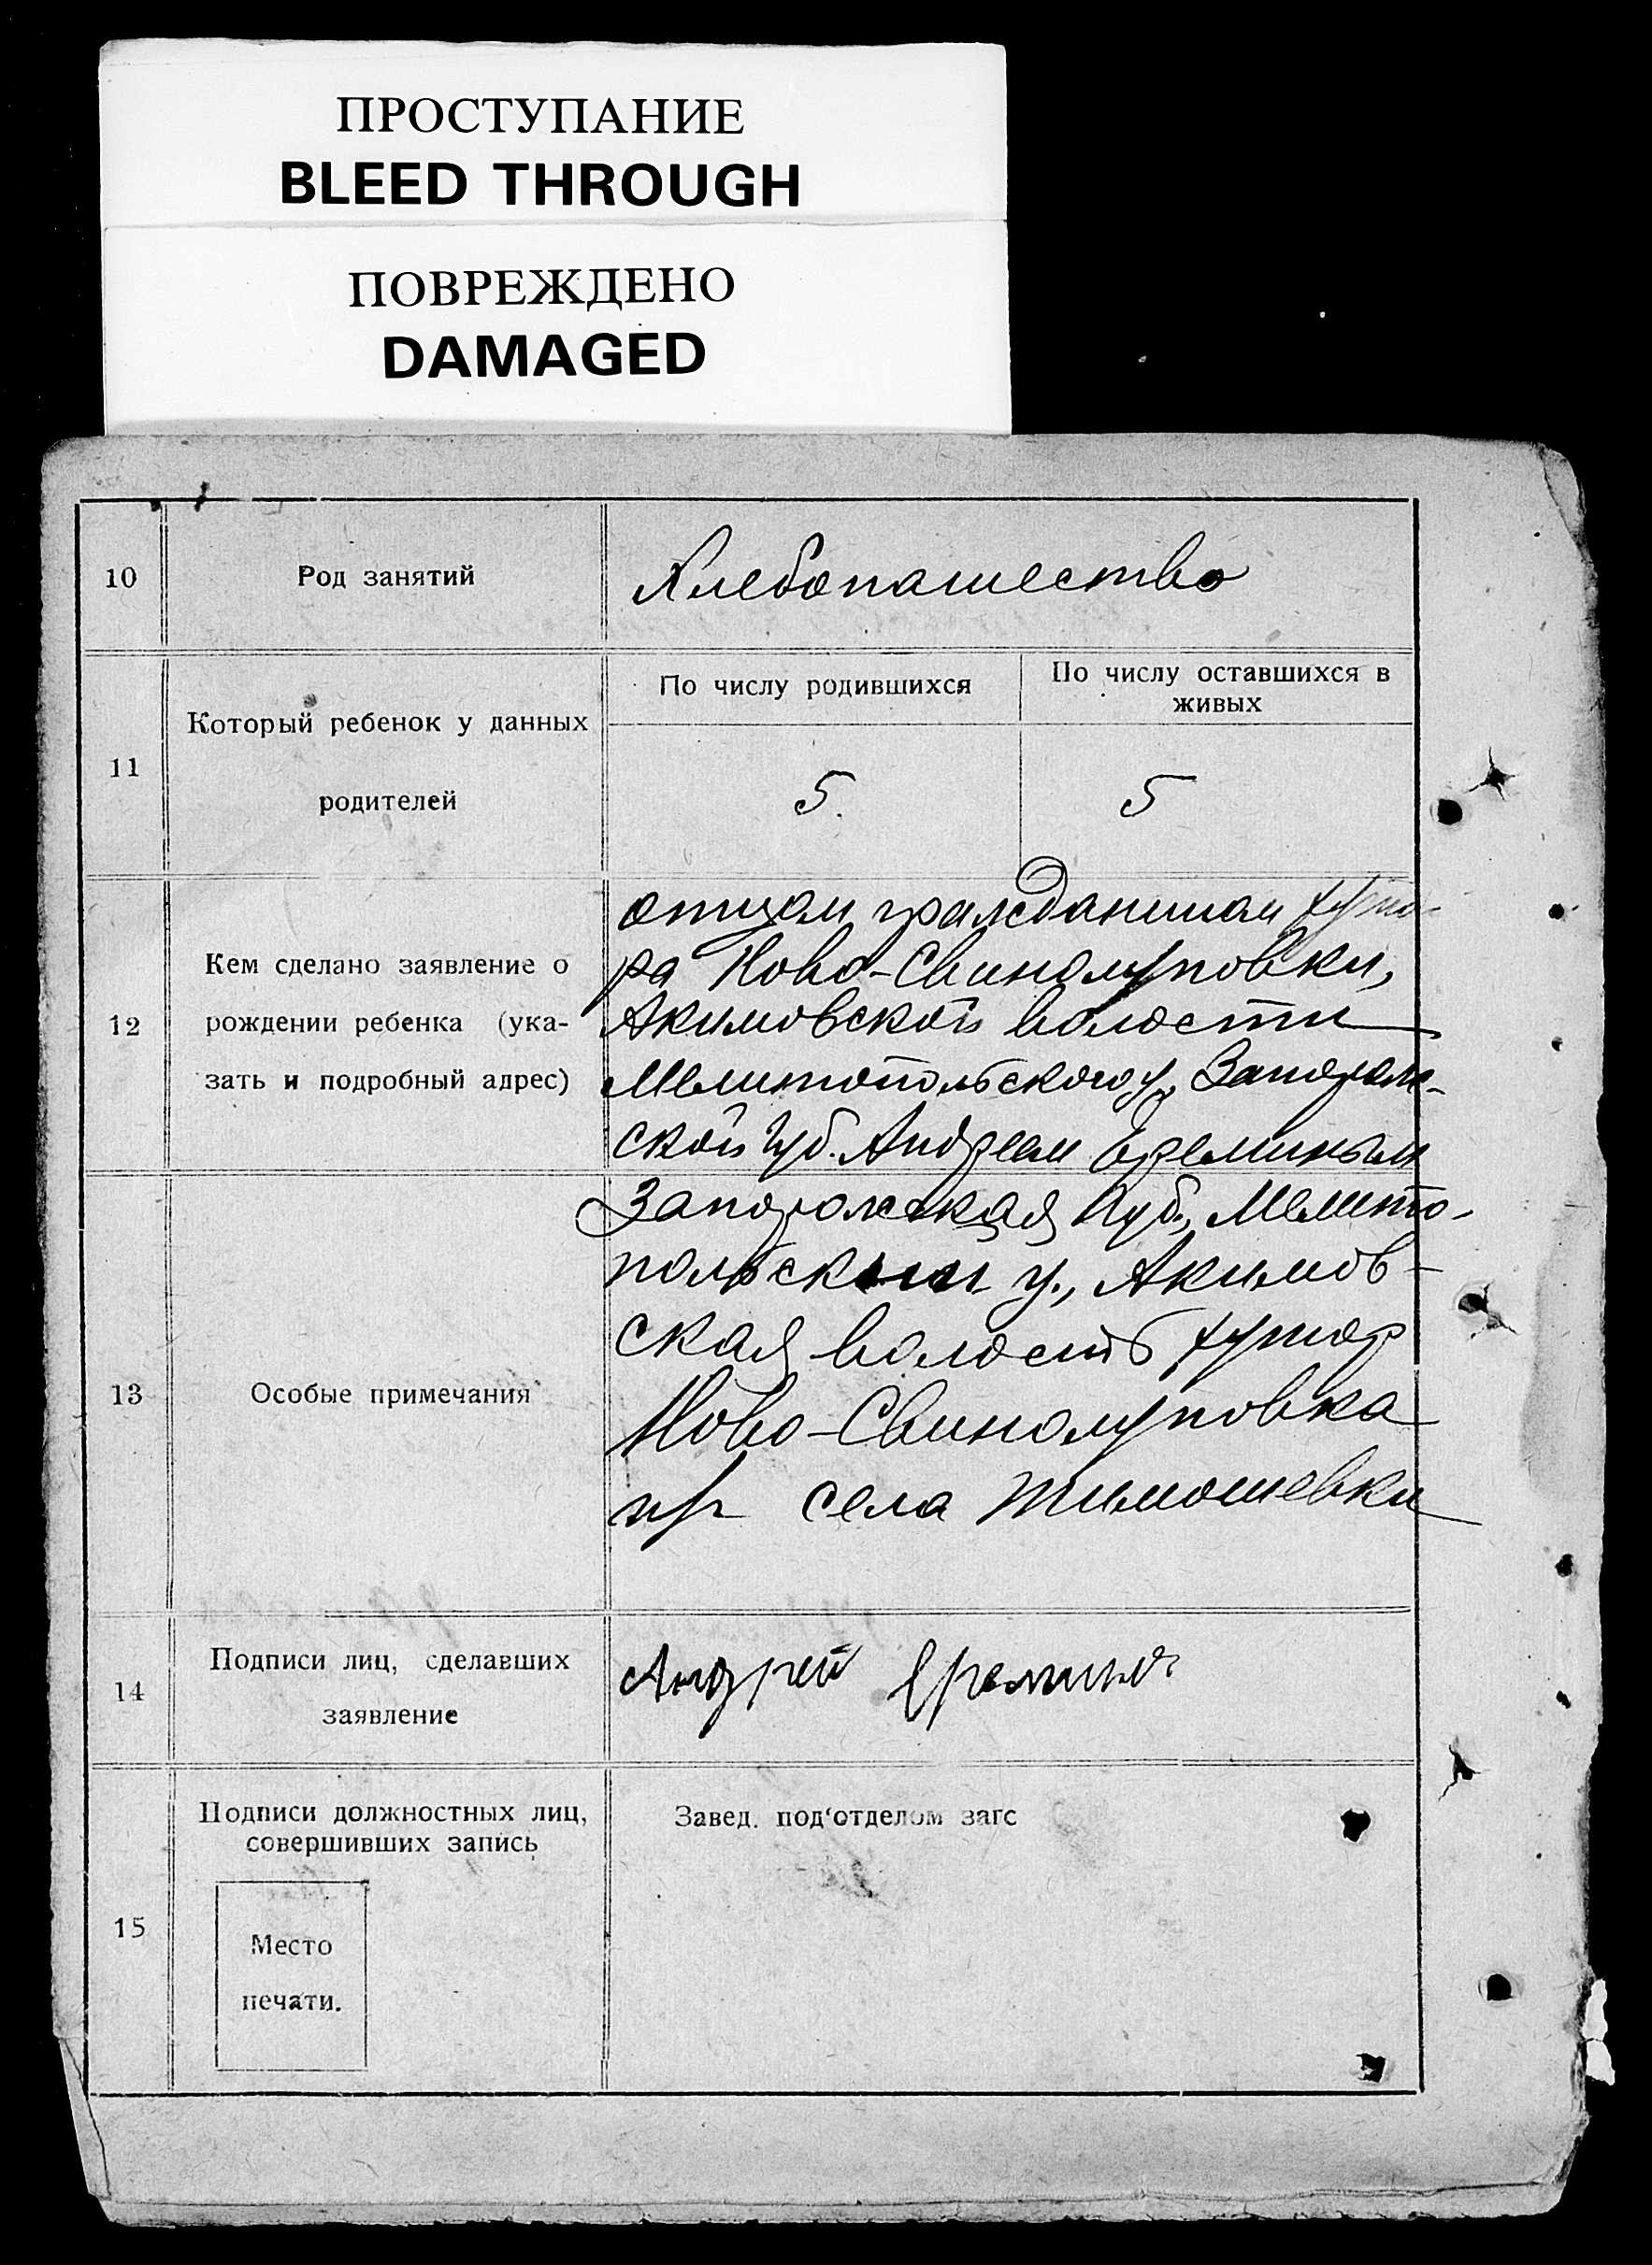 ПРОСТУПАНИЕ
BLEED THROUGH
ПОВРЕЖДЕНО
DAMAGED
10
Род занятий
Хлебопашество
11
Который ребенок у данных
родителей
По числу родившихся
По числу оставшихся в
живых
5.
5
12
Кем сделано заявление о
рождении ребенка (ука-
зать и подробный адрес)
отцом гражданином хуто-
ра Ново-Свинолуповки,
Акимовской волости
Мелитопольского у. Запорож-
ской губ. Андреем Ереминым
13
Особые примечания
Запорожская губ., Мелито-
польский у., Акимов-
ская волость хутор
Ново-Свинолуповка
пр села Тимошевки
14
Подписи лиц, сделавших
заявление
Андрей Еремин
15
Подписи должностных лиц,
совершивших запись
Место
печати.
Завед. под'отделом загс